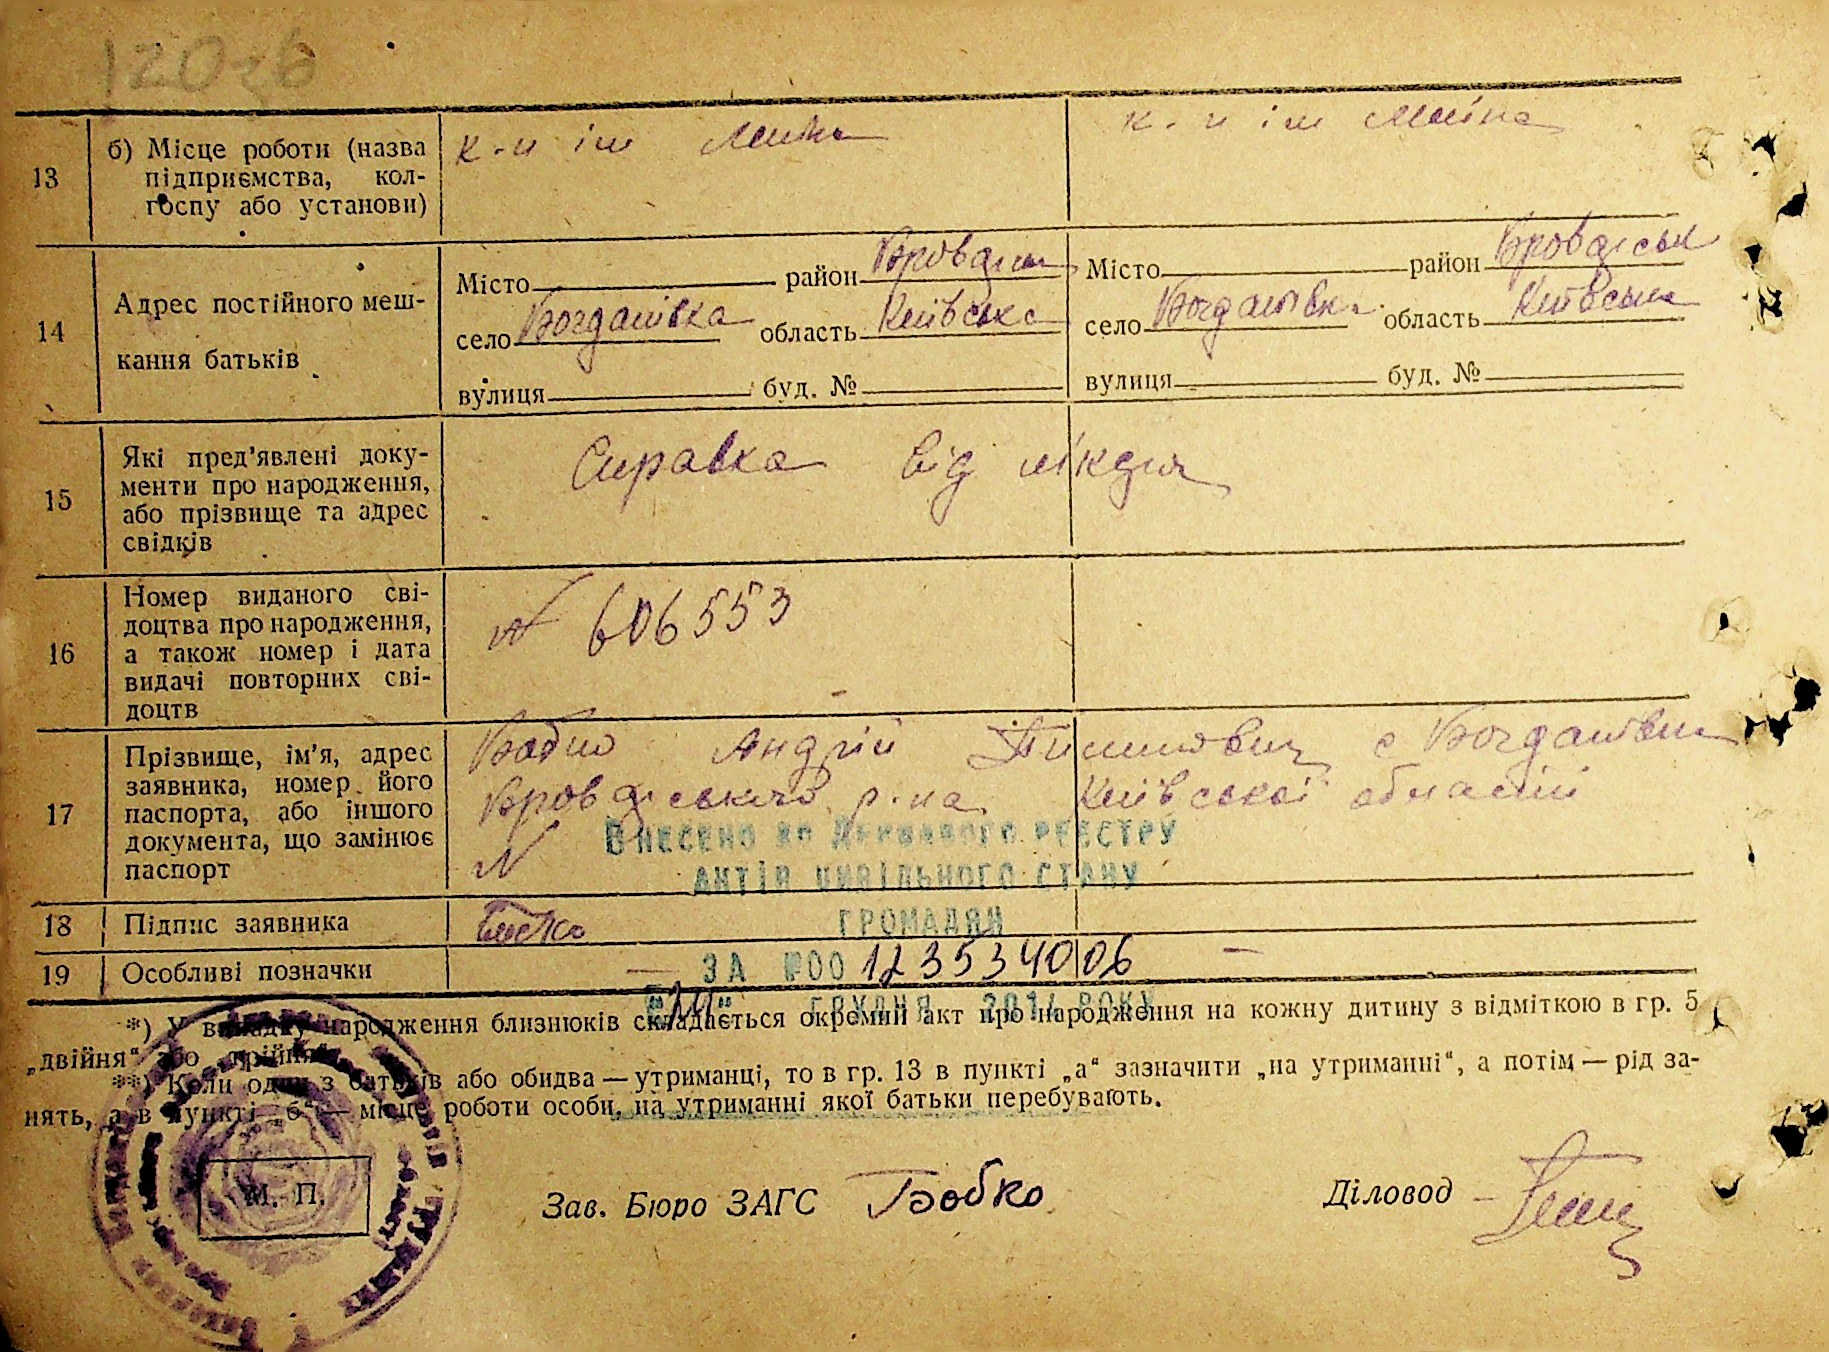 13
б) Місце роботи (назва
підприємства, кол-
госпу або установи)
к-п ім
к-п ім
14
Адрес постійного меш-
кання батьків
Місто район
село Богданівка область Київська
вулиця буд. №
Місто район Броварськ
село Богданівка область Київська
вулиця буд. №
15
Які пред'явлені доку-
менти про народження,
або прізвище та адрес
свідків
Справка від
16
Номер виданого сві-
доцтва про народження,
а також номер і дата
видачі повторних сві-
доцтв
№ 606553
17
Прізвище, ім'я, адрес
заявника, номер його
паспорта, або іншого
документа, що замінює
паспорт
Андрій с Богданівки
Броварського р-на Київської області
№
ВНЕСЕНО ДО ДЕРЖАВНОГО РЕЄСТРУ
АКТІВ ЦИВІЛЬНОГО СТАНУ
ГРОМАДЯН
18
Підпис заявника
19
Особливі позначки
— ЗА №00 123534006 —
ГРУДНЯ 2014 РОКУ
*) У випадку народження близнюків складається окремий акт про народження на кожну дитину з відміткою в гр. 5
„двійня“ або „трійня“.
**) Коли один з батьків або обидва — утриманці, то в гр. 13 в пункті „а“ зазначити „на утриманні“, а потім — рід за-
нять, а в пункті „б“ — місце роботи особи, на утриманні якої батьки перебувають.
М. П.
Зав. Бюро ЗАГС Бобко
Діловод